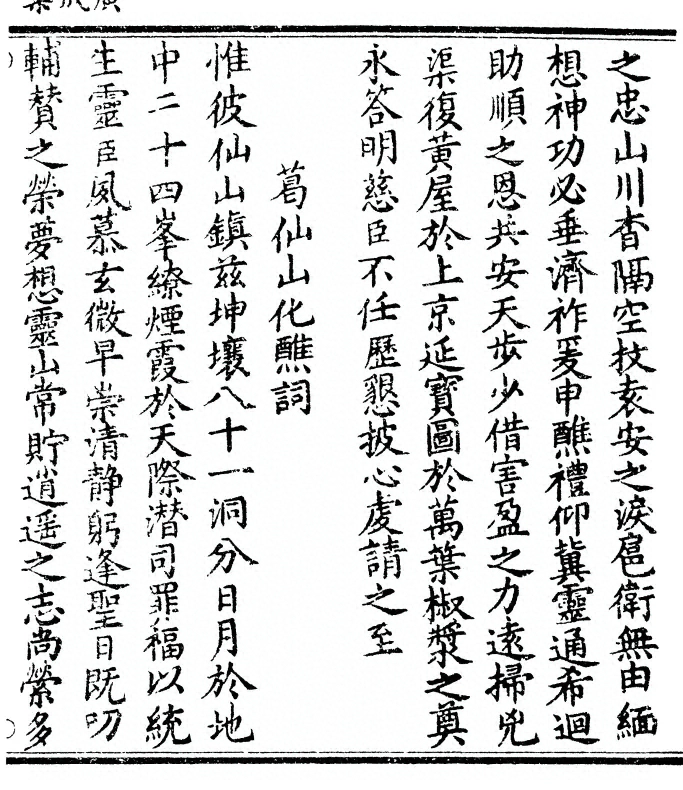 之忠山川杳隔空抆袁安之淚扈衛無由緬
想神功必垂濟祚爰申醮禮仰冀靈通希迴
助順之恩共安天步少借害盈之力遠掃兇
渠復黃屋於上京延寶圖於萬葉椒漿之奠
永答明慈臣不任歷懇披心虔請之至
葛仙山化醮詞
惟彼仙山鎮茲坤壤八十一洞分日月於地
中二十四峯繚煙霞於天際潜司罪福以統
生靈臣夙慕玄微早崇清静躬逢聖日既叨
輔賛之榮夢想靈山常貯逍遥之志尚縈多